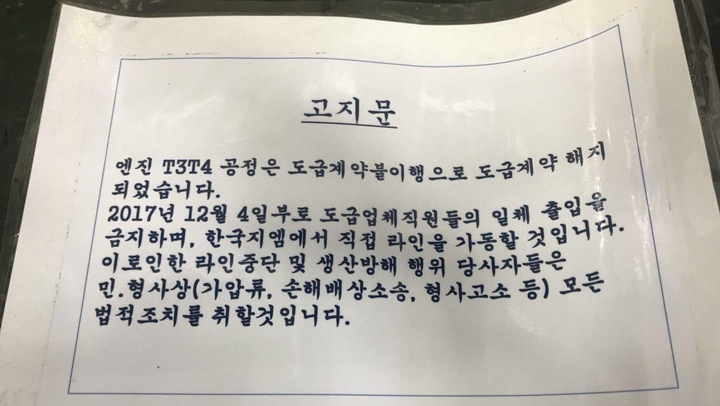 고지문
엔진 T3T4 공정은 도급계약불이행으로 도급계약 해지
되었습니다.
2017년 12월 4일부로 도급업체직원들의 일체 출입을
금지하며, 한국지엠에서 직접 라인을 가동할 것입니다.
이로인한 라인중단 및 생산방해 행위 당사자들은
민.형사상(가압류, 손해배상소송, 형사고소 등) 모든
법적조치를 취할것입니다.